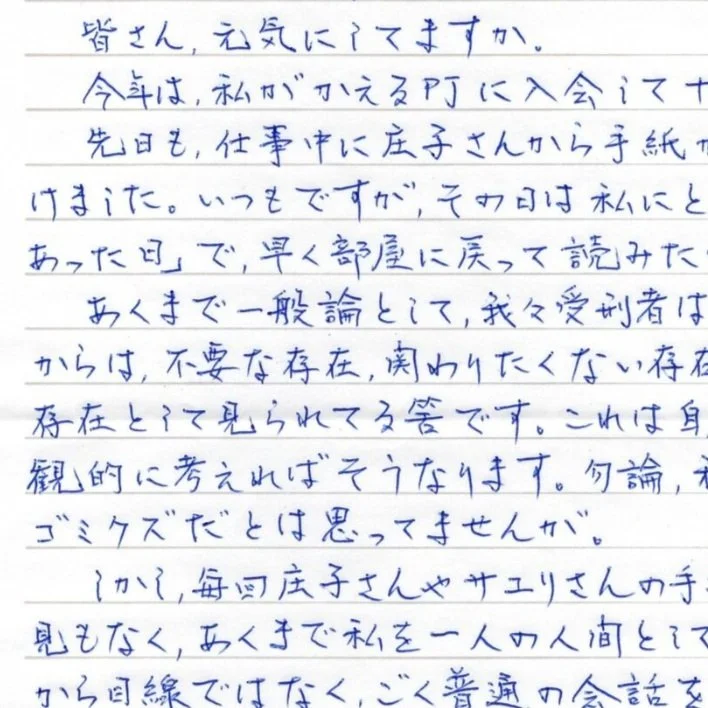 皆さん,元気にしてますか。
今年は,私がかえるPJに入会して十
先日も,仕事中に庄子さんから手紙が
けました。いつもですが,その日は私にと
あった日」で,早く部屋に戻って読みたく
あくまで一般論として,我々受刑者は
からは,不要な存在,関わりたくない存在
存在として見られてる筈です。これは自
観的に考えればそうなります。勿論,私
ゴミクズだとは思ってませんが。
しかし,毎回庄子さんやサエリさんの手
見もなく,あくまで私を一人の人間として
から目線ではなく,ごく普通の会話を